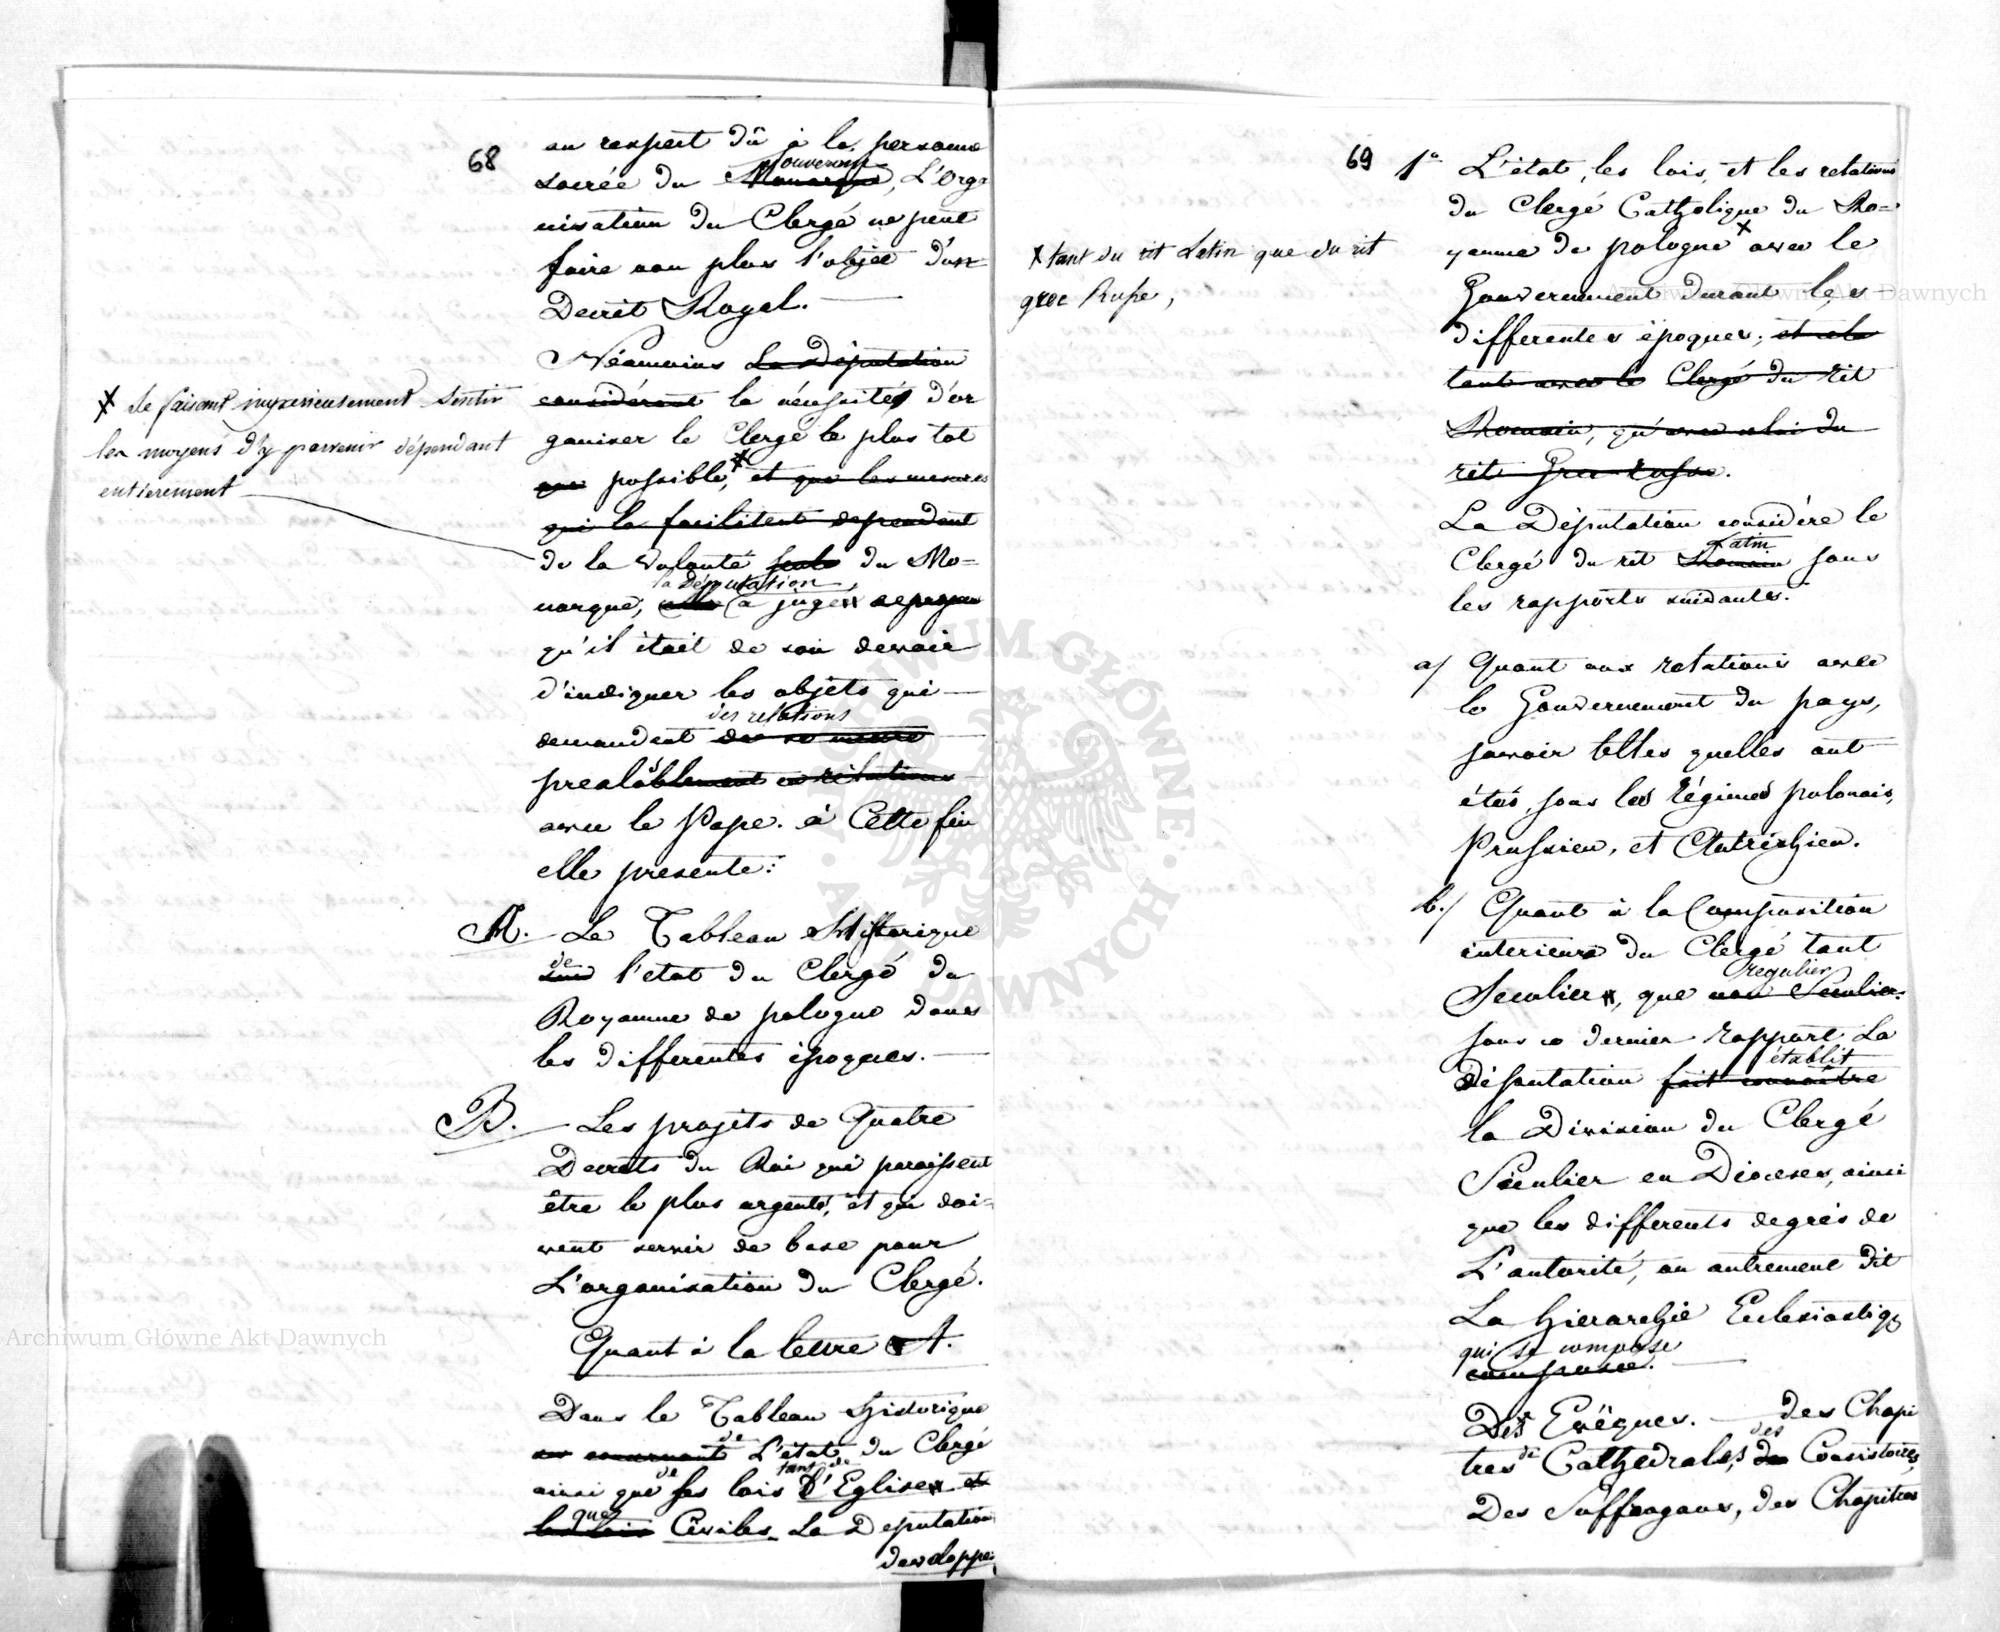 68
au respect dû à la personne
sacrée du Monarque Souverain, L'Orga
nisation du Clergé ne peut
faire non plus l'objet d'un
Decrèt Royal.
Néanmoins La Députation
considérant la nécessité d'or
ganiser le Clergé le plus tot
que possible, * et que les mesures
qui la facilitent dependent
de la volonté seule du Mo=
la Députation
narque, elle a jugé
qu'il était de son devoir
d'indiquer les objets qui
des relations
demandent de se mettre
prealablement en relations
avec le Pape. à Cette fin
elle presente:
* se faisant impérieusement sentir
les moyens d'y parvenir dépendant
entierement
A. Le Tableau Historique
de
sur l'etat du Clergé du
Royaume de pologne dans
les differentes époques.
B. Les projets de Quatre
Decrèts du Roi qui paraissent
être le plus urgents, et qui doi=
vent servir de base pour
L'organisation du Clergé.
Quant à la lettre A.
Dans le Tableau Historique
de
concernant L'état du Clergé
de tant de
ainsi que ses lois d'Eglise et
que
les lois Civiles La Deputation
developpe
69
1° L'état, les lois, et les relations
du Clergé Catholique du Ro=
yaume de pologne * avec le
Gouvernement durant les
differentes époques; et cela
tant avec le Clergé du rit
Romain, qu'avec celui du
rit Grec-russe.
* tant du rit Latin que du rit
grec Russe,
La Députation considère le
Latin
Clergé du rit Romain sous
les rapports suivants:
a/ Quant aux relations avec
le Gouvernement du pays,
savoir telles quelles ont
étés, sous les Régimes polonais,
Prussien, et Autrichien.
b./ Quant à la Composition
interieure du Clergé tant
regulier
Seculier, que non Seculier.
sous ce dernier rapport La
établit
Députation fait connaître
la Division du Clergé
Séculier en Dioceses, ainsi
que les differents degrés de
L'autorité, ou autrement dit
La Hierarchie Ecclesiastiq
qui se compose
composée.
Des Evêques. des Chapi
des
tres de Cathedrales, de Consistoires,
Des Suffragans, des Chapitres
Archiwum Główne Akt Dawnych
Archiwum Główne Akt Dawnych
ARCHIWUM GŁÓWNE AKT DAWNYCH